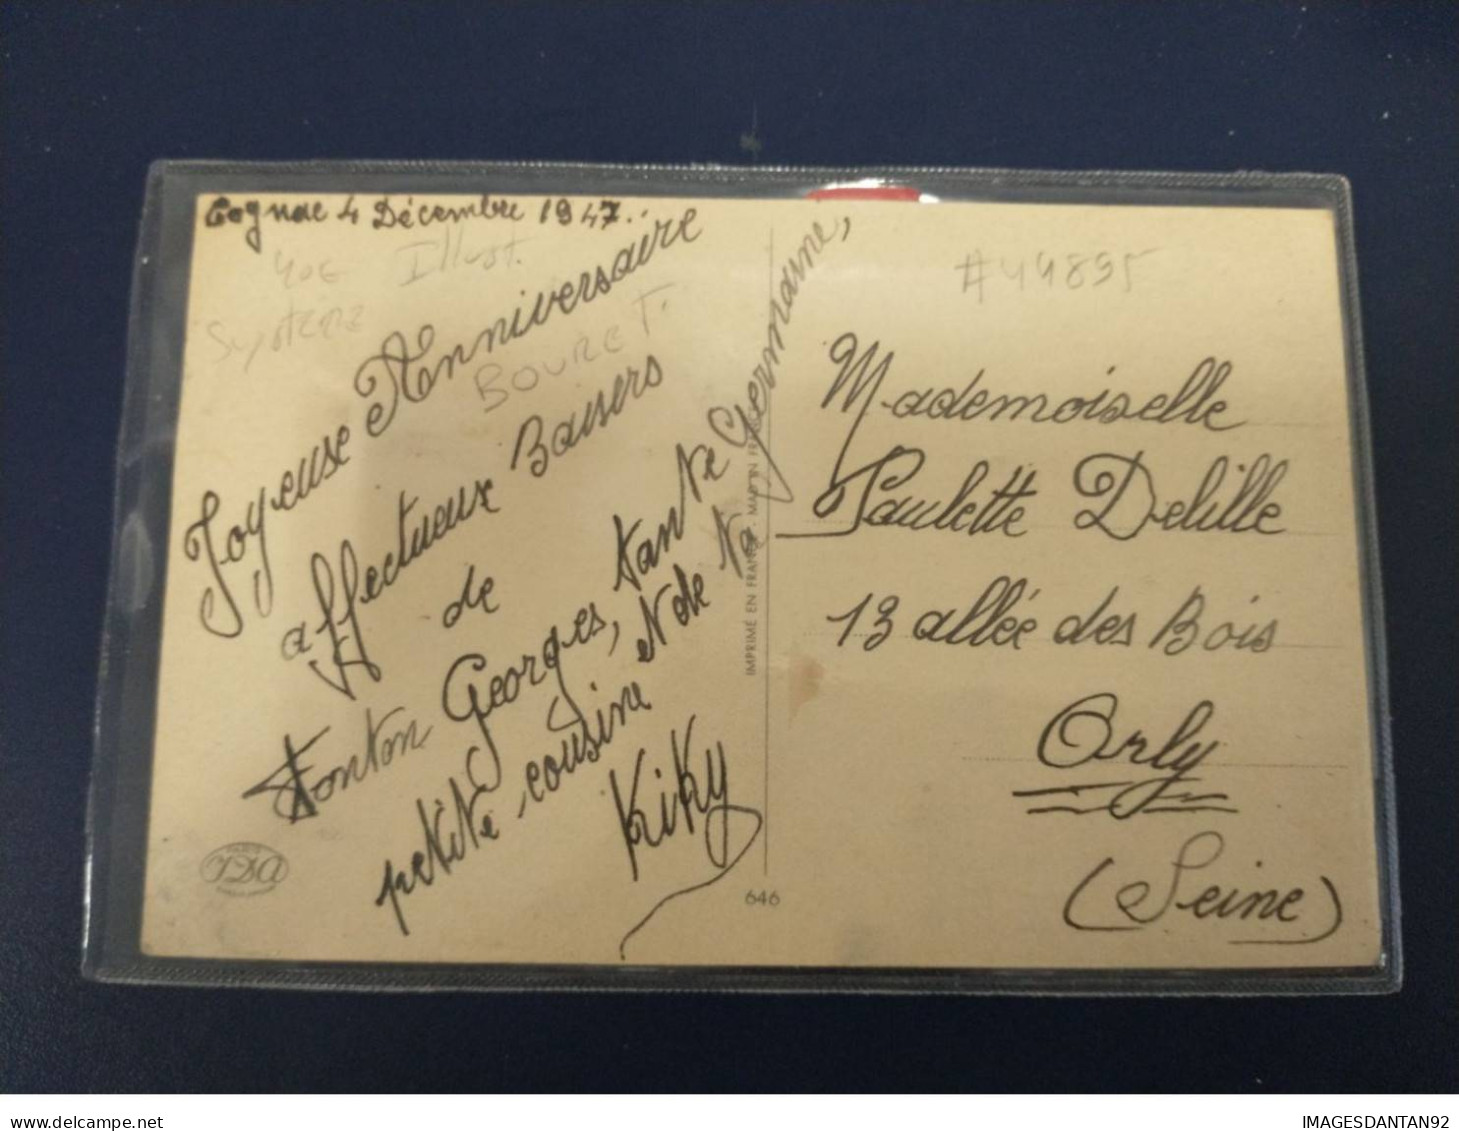 Cognac 4 Décembre 1947.
40€ Illust.
Système
BOURET.
Joyeuse Anniversaire
affectueux Baisers
de
Tonton Georges, tante Germaine,
petite cousine
Kiky
PARIS
646
IMPRIMÉ EN FRANCE
#44895
Mademoiselle
Paulette Delille
13 allée des Bois
Orly
(Seine)
delcampe.net
IMAGESDANTAN92